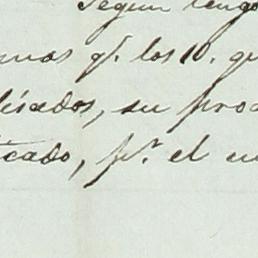 Según tengo
mas q.e los 10. qu
lisados, su prod
icado, p.r el cu